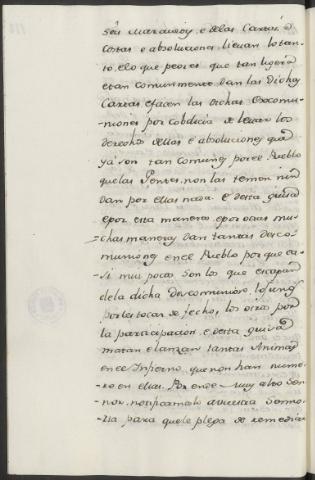 seis Maravedis, e delas Cartas, e
costas e absoluciones, lievan lo tan-
to, e lo que peor es que tan ligera
e tan comunmente dan las dichas
Cartas e facen las dichas Excomu-
-niones por cobdicia de levar los
derechos dellas e absoluciones que
yá son tan comunes por el Pueblo
que las Gentes, non las temen nin
dan por ellas nada. E desta guisa
e por esta manera e por otras mu-
-chas maneras dan tantas desco-
muniones en el Pueblo por que ca-
-si mui pocos son los que escapan
de la dicha descomunion los unos
por les tocar de fecho, los otros por
la participacion, e desta guisa
matan e lanzan tantas Animas
en el Infierno que non han nume-
-ro en ellas. Por ende muy alto Sen-
nor, notificamoslo a vuestra Senno-
-ria para que le plega de remediar